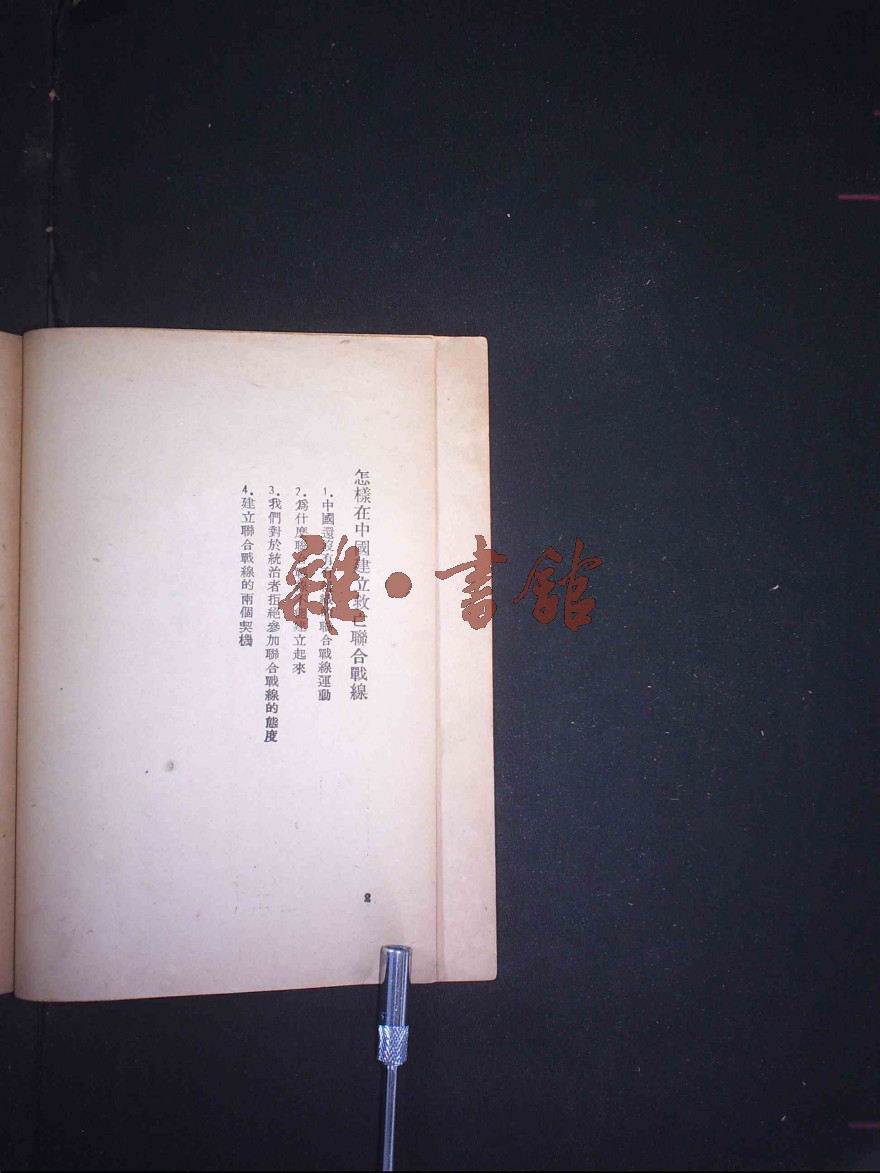 怎樣在中國建立救亡聯合戰線
1.中國還沒有 聯合戰線運動
2.爲什麽聯 建立起來
3.我們對於統治者拒絕參加聯合戰線的態度
4.建立聯合戰線的兩個契機
2
雜·書館